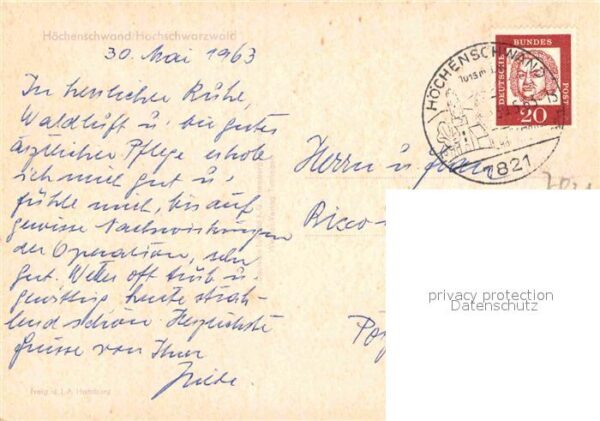 Höchenschwand/Hochschwarzwald
30. Mai 1963
In herrlicher Ruhe,
Waldluft u. bei guter
ärztlicher Pflege erhole
ich mich gut u.
fühle mich, bis auf
gewisse Nachwirkungen
der Operation, sehr
gut. Wetter oft trüb u.
gewittrig, heute strah-
lend schön. Herzlichste
Grüsse von Ihrer
Friede.
HÖCHENSCHWAND
1015 m
7821
DEUTSCHE BUNDES POST
20
Herrn u. Frau
privacy protection
Datenschutz